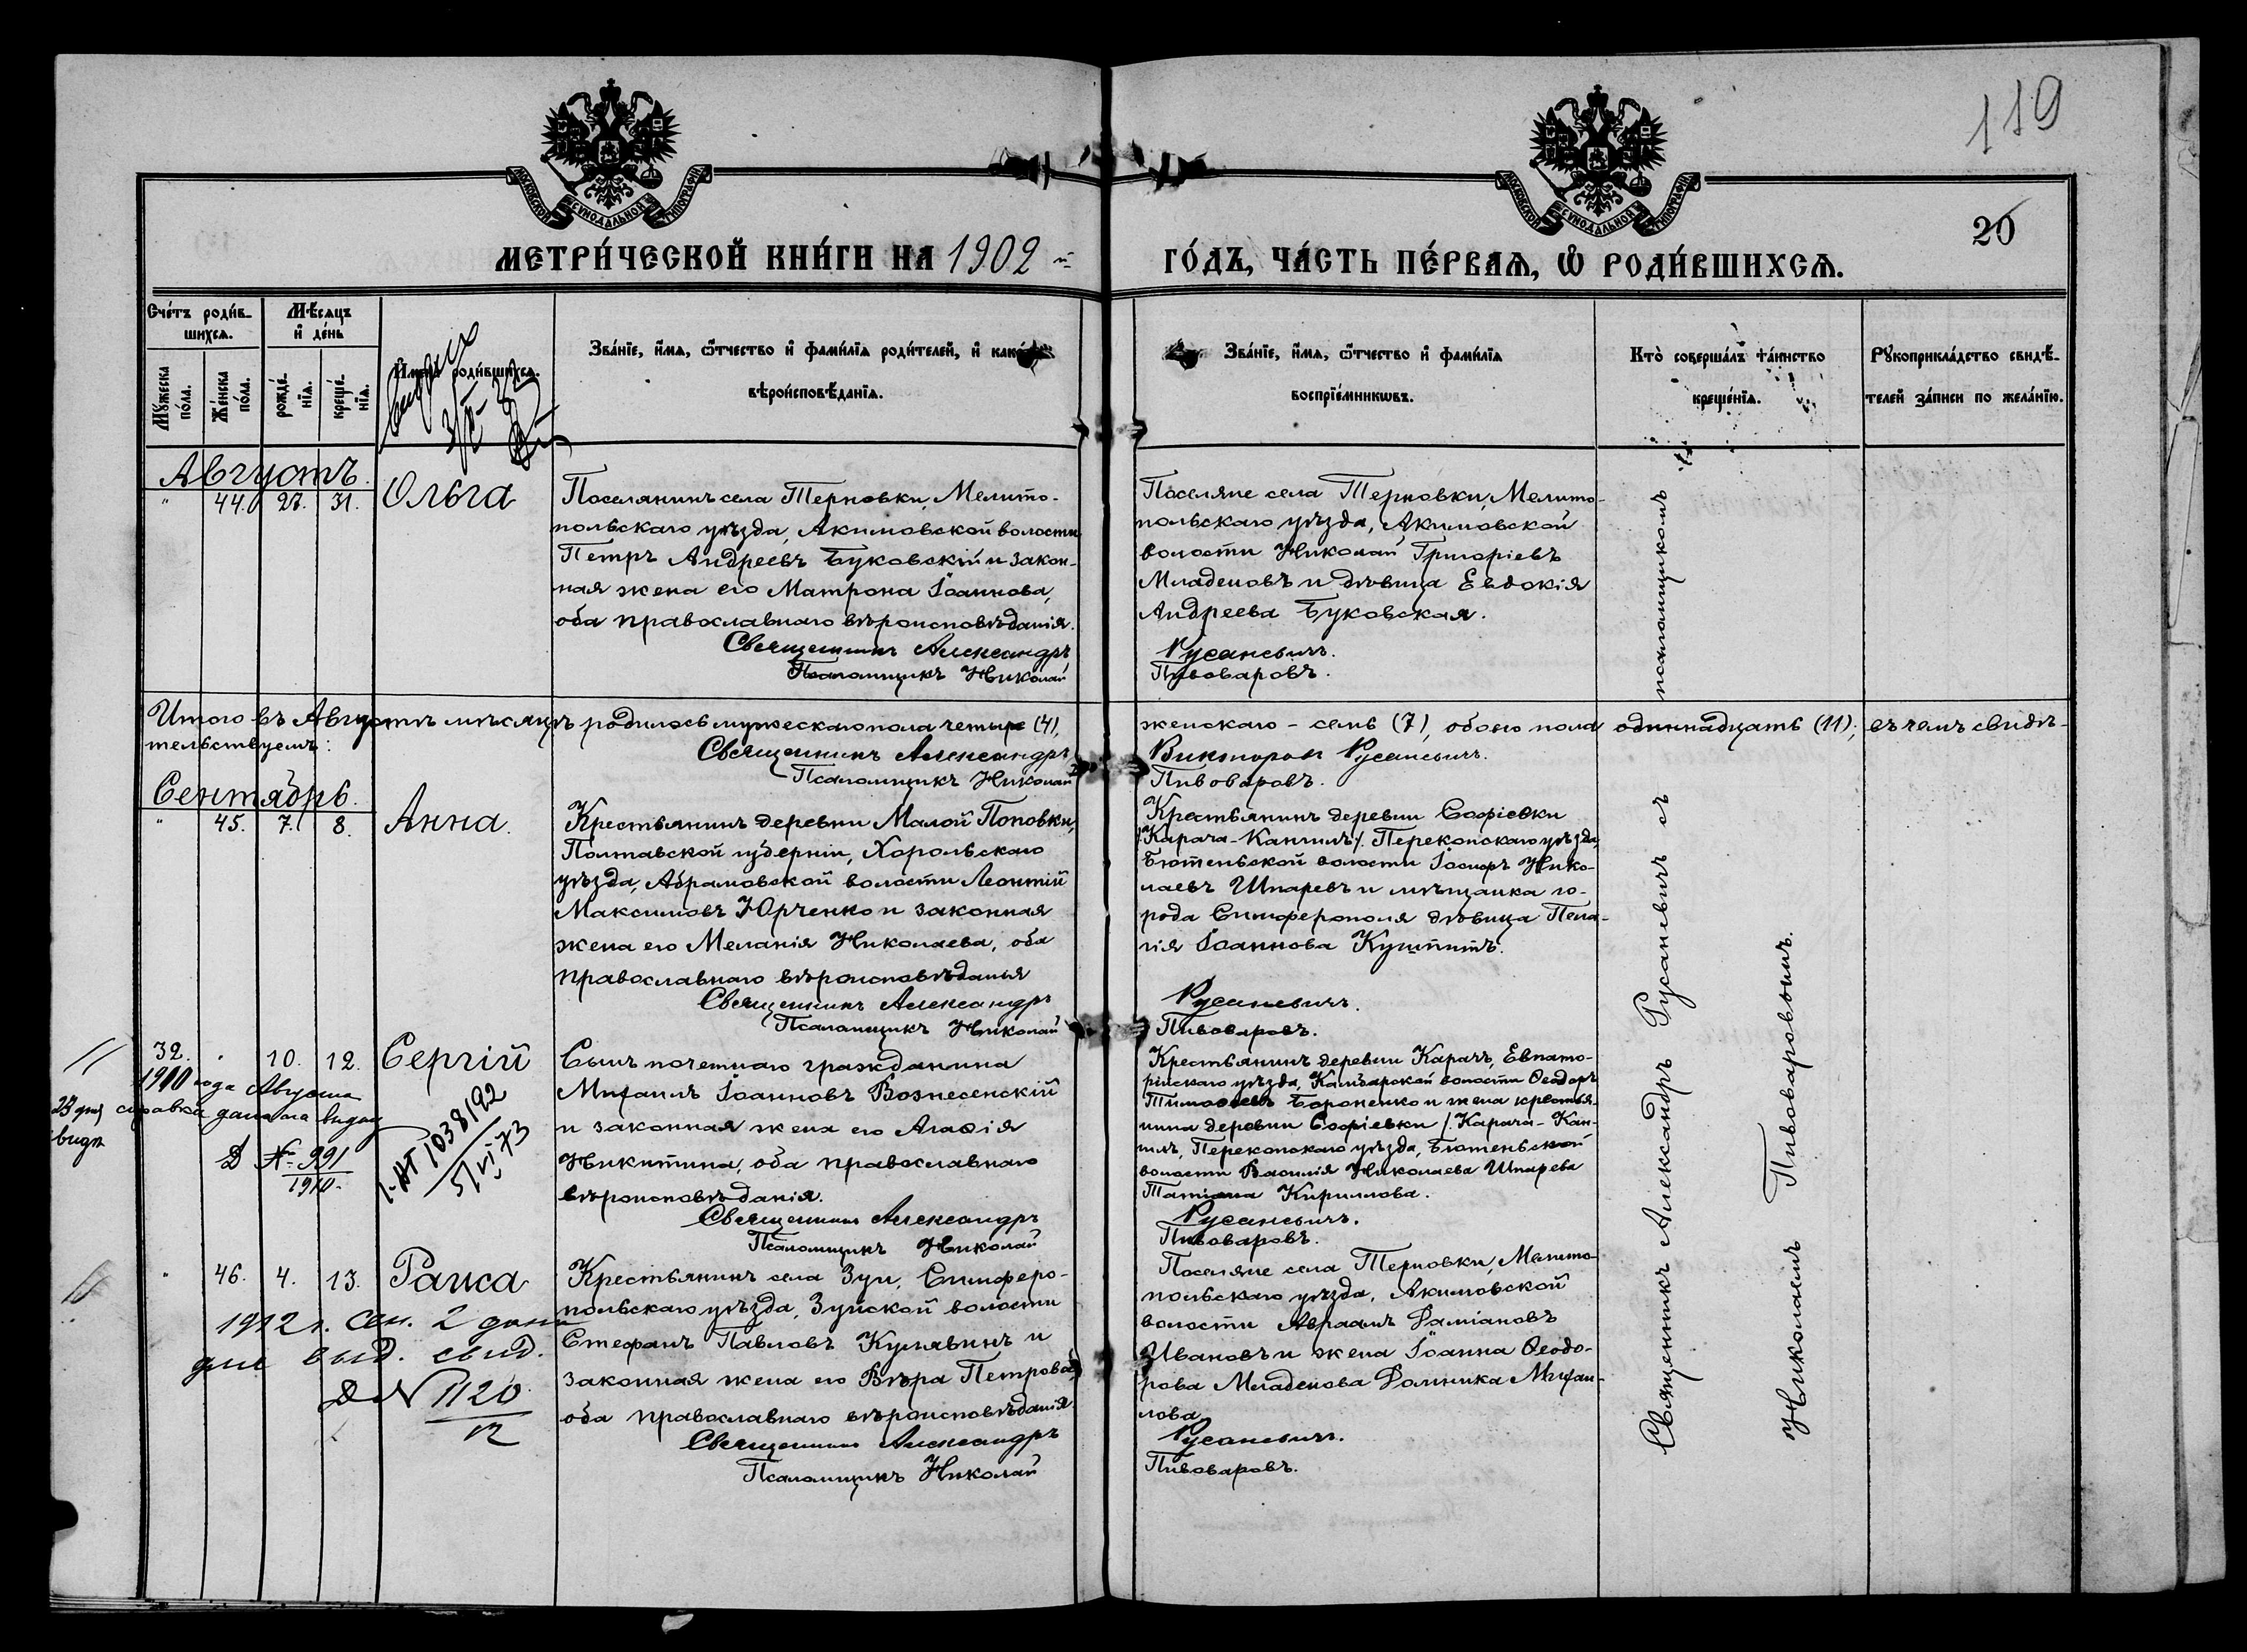 119
20
МОСКОВСКОЙ СѴНОДАЛЬНОЙ ТИПОГРАФІИ
МОСКОВСКОЙ СѴНОДАЛЬНОЙ ТИПОГРАФІИ
МЕТРИ́ЧЕСКОЙ КНИ́ГИ НА 1902 й
ГО́ДЪ, ЧА́СТЬ ПЕ́РВАѦ, Ѡ҆ РОДИ́ВШИХСѦ.
Сче́тъ роди́в-
шихсѧ.
Мꙋ́жеска по́ла.
Же́нска по́ла.
Мѣ́сѧцъ
и҆ де́нь
рожде́-
нїѧ.
креще́-
нїѧ.
И҆мена̀ роди́вшихсѧ.
Зва́нїе, и҆́мѧ, ѻ҆́тчество и҆ фами́лїѧ роди́телей, и҆
вѣроисповѣ́данїѧ.
Зва́нїе, и҆́мѧ, ѻ҆́тчество и҆ фами́лїѧ
воспрїе́мникѡвъ.
Кто̀ соверша́лъ та́инство
креще́нїѧ.
Рꙋкоприкла́дство свидѣ́-
телей за́писи по жела́нїю.
Августъ.
" 44. 27. 31. Ольга
Поселянинъ села Терновки, Мелито-
польскаго уѣзда, Акимовской волости
Петръ Андреевъ Буковскій и закон-
ная жена его Матрона Іоаннова,
оба православнаго вѣроисповѣданія.
Священникъ Александръ
Псаломщикъ Николай
Поселяне села Терновки, Мелито-
польскаго уѣзда, Акимовской
волости Николай Григоріевъ
Младеновъ и дѣвица Евдокія
Андреева Буковская.
Русаневичъ.
Пивоваровъ.
Итого въ Августѣ мѣсяцѣ родилось мужескаго пола четыре (4), женскаго - семь (7), обоего пола одиннадцать (11); въ чемъ свидѣ-
тельствуемъ:
Священникъ Александръ Викторовъ Русаневичъ.
Псаломщикъ Николай Пивоваровъ.
Сентябрь.
" 45. 7. 8. Анна.
Крестьянинъ деревни Малой Поповки,
Полтавской губерніи, Хорольскаго
уѣзда, Абрамовской волости Леонтій
Максимовъ Юрченко и законная
жена его Меланія Николаева, оба
православнаго вѣроисповѣданія
Священникъ Александръ
Псаломщикъ Николай
Крестьянинъ деревни Софіевки
/Карача-Кангилъ/. Перекопскаго уѣзда,
Бютеньской волости Іосифъ Нико-
лаевъ Шпаревъ и мѣщанка го-
рода Симферополя дѣвица Пела-
гія Іоаннова
Русаневичъ.
Пивоваровъ.
32. " 10. 12. Сергій
1910 года Августа
23 дня справка дана на видъ
D № 991
1910.
1038192
5/VI 73
Сынъ почетнаго гражданина
Михаилъ Іоанновъ Вознесенскій
и законная жена его Агаѳія
Никитина, оба православнаго
вѣроисповѣданія.
Священникъ Александръ
Псаломщикъ Николай
Крестьянинъ деревни Карачъ, Евпато-
рійскаго уѣзда, волости Ѳеодоръ
Тимоѳеевъ Бороненко и жена крестья-
нина деревни Софіевки /. Карача-Кан-
гилъ, Перекопскаго уѣзда, Бютеньской
волости Василія Николаева Шпарева
Татіана Кириллова.
Русаневичъ.
Пивоваровъ.
" 46. 4. 13. Раиса
1912 г. Сен. 2 дня
выд. свид.
D N 1120
12
Крестьянинъ села Зуи, Симферо-
польскаго уѣзда, Зуйской волости
Стефанъ Павловъ Кулявинъ и
законная жена его Вѣра Петрова,
оба православнаго вѣроисповѣданія
Священникъ Александръ
Псаломщикъ Николай
Поселяне села Терновки, Мелито-
польскаго уѣзда, Акимовской
волости Авраамъ Даміановъ
Ивановъ и жена Іоанна Ѳеодо-
рова Младенова Домника Михаи-
лова
Русаневичъ.
Пивоваровъ.
Священникъ Александръ Русаневичъ съ псаломщикомъ
Николаемъ Пивоваровымъ.